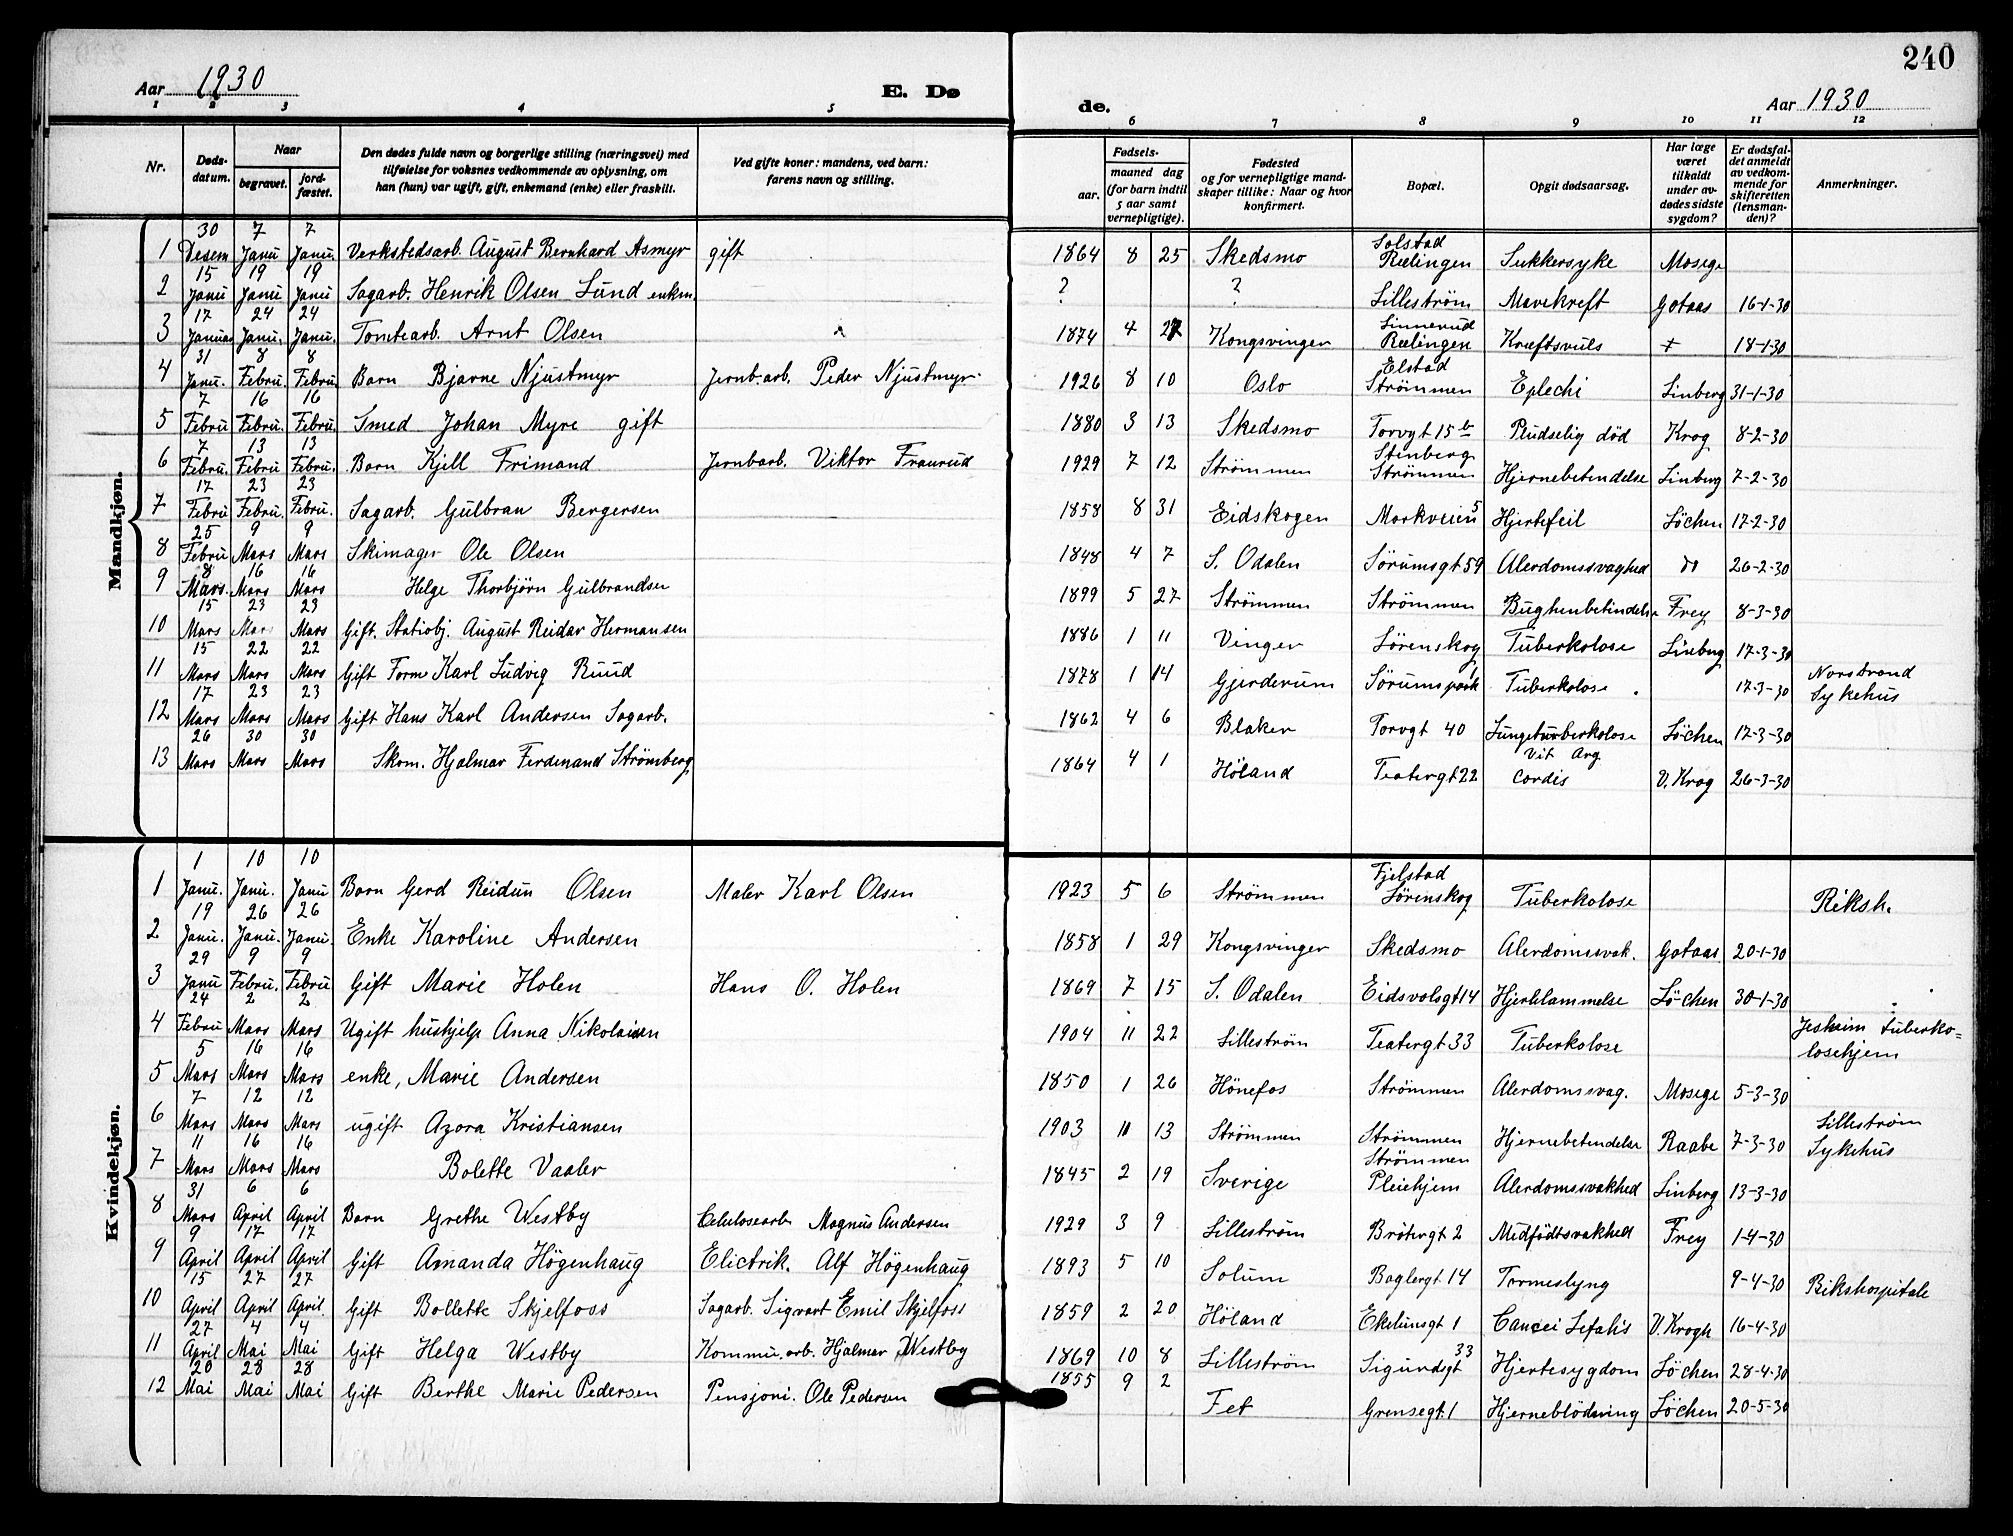 240
Aar 1930
E. Dø
de.
Aar 1930
1 2 3 4 5 6 7 8 9 10 11 12
Nr.
Døds-datum.
Naar
begravet.
jord-fæstet.
Den dødes fulde navn og borgerlige stilling (næringsvei) med
tilføielse for voksnes vedkommende av oplysning, om
han (hun) var ugift, gift, enkemand (enke) eller fraskilt.
Ved gifte koner: mandens, ved barn:
farens navn og stilling.
Fødsels-
aar.
maaned dag
(for barn indtil
5 aar samt
vernepligtige).
Fødested
og for vernepligtige mand-
skaper tillike: Naar og hvor
konfirmert.
Bopæl.
Opgit dødsaarsag.
Har læge
været
tilkaldt
under av-
dødes sidste
sygdom?
Er dødsfal-
det anmeldt
av vedkom-
mende for
skifteretten
(lensman-
den)?
Anmerkninger.
Mandkjøn.
1 30 Desem 7 Janu 7 Janu. Verkstedsarb. August Bernhard Asmyr gift 1864 8 25 Skedsmo Solstad Rælingen Sukkersyke Mosege
2 15 Janu 19 Janu 19 Janu Sagarb. Henrik Olsen Lund enkm. ? ? Lilleström Mavekreft Gotaas 16-1-30
3 17 Januar 24 Janu. 24 Janu. Tomtearb. Arnt Olsen 1874 4 27 Kongsvinger Linnerud Rælingen Kræftsvuls + 18-1-30
4 31 Janu. 8 Febru. 8 Febru. Barn Bjarne Njustmyr Jernb.arb. Peder Njustmyr. 1926 8 10 Oslo Elstad Strömmen Eplechi Linberg 31-1-30
5 7 Febru 16 Febru. 16 Febru. Smed Johan Myre gift 1880 3 13 Skedsmo Torvgt 15 b Pludselig död Krog 8-2-30
6 7 Febru. 13 Febru 13 Febru. Barn Kjell Frimand Jernbarb. Viktor Fraurud 1929 7 12 Strömmen Stenberg Strömmen Hjernebetendelse Linberg 7-2-30
7 17 Febru 23 Febru. 23 Febru. Sagarb. Gulbran Bergersen 1858 8 31 Eidskogen Markveien 5 Hjertefeil Löchen 17-2-30
8 25 Febru 9 Mars 9 Mars Skimager Ole Olsen 1848 4 7 S. Odalen Sörumsgt 59 Alerdomssvaghed do 26-2-30
9 8 Mars. 16 Mars 16 Mars Helge Thorbjörn Gulbrandsen 1899 5 27 Strömmen Strömmen Bughenbetindelse Frey 8-3-30
10 15 Mars 23 Mars 23 Mars Gift. Statiobj. August Reidar Hermansen 1886 1 11 Vinger Lörenskog Tuberkolose Linberg 17-3-30
11 15 Mars 22 Mars 22 Mars Gift Form Karl Ludvig Ruud 1878 1 14 Gjerderum Sörumspark Tuberkolose 17-3-30 Norstrand Sykehus
12 17 Mars 23 Mars 23 Mars Gift Hans Karl Andersen Sagarb. 1862 4 6 Blaker Torvgt 40 Lungetuberkolose Löchen 17-3-30
13 26 Mars 30 Mars 30 Mars Skom. Hjalmar Ferdenand Strömberg 1864 4 1 Höland Teatergt 22 Vit Arg cordis V. Krog 26-3-30
Kvindekjøn.
1 1 Janu. 10 Janu. 10 Janu Barn Gerd Reidun Olsen Maler Karl Olsen 1923 5 6 Strömmen Fjelstad Lörenskog Tuberkolose Riksh.
2 19 Janu. 26 Janu. 26 Janu. Enke Karoline Andersen 1858 1 29 Kongsvinger Skedsmo Alerdomssvak. Gotaas 20-1-30
3 29 Janu 9 Febru. 9 Febru Gift Marie Holen Hans O. Holen 1869 7 15 S. Odalen Eidsvolsgt 14 Hjertelammelse Löchen 30-1-30
4 24 Febru 2 Mars 2 Mars Ugift hushjelp Anna Nikolaisen 1904 11 22 Lilleström Teatergt 33 Tuberkolose Jesheim tuberko=losehjem
5 5 Mars 16 Mars 16 Mars enke, Marie Andersen 1850 1 26 Hönefos Strömmen Alerdomssvag. Mosege 5-3-30
6 7 Mars 12 Mars 12 Mars ugift Azora Kristiansen 1903 11 13 Strömmen Strömmen Hjernebetendelse Raabe 7-3-30 Lilleström Sykehus
7 11 Mars 16 Mars 16 Mars Bolette Vaaler 1845 2 19 Sverige Strömmen Pleiehjem Alerdomssvakhed Linberg 13-3-30
8 31 Mars 6 April 6 April Barn Grethe Westby Celulosearb Magnus Andersen 1929 3 9 Lilleström Brötergt 2 Medfödtsvakhed Frey 1-4-30
9 9 April 17 April 17 April Gift Amanda Högenhaug Elictrik. Alf Högenhaug 1893 5 10 Solum Baglergt 14 Tarmeslyng 9-4-30 Rikshospitale
10 15 April 27 April 27 April. Gift Bollette Skjelfoss Sagarb. Sigvart Emil Skjelfoss 1859 2 20 Höland Ekelunsgt 1 Cancei Lefalis V. Krogh 16-4-30
11 27 April 4 Mai 4 Mai Gift Helga Westby Kommu. arb. Hjalmar Westby 1869 10 8 Lilleström Sigurdsgt 33 Hjertesygdom Löchen 28-4-30
12 20 Mai 28 Mai 28 Mai Gift Berthe Marie Pedersen Pensjoni. Ole Pedersen 1855 9 2 Fet Grensegt. 1 Hjerneblödning Löchen 20-5-30